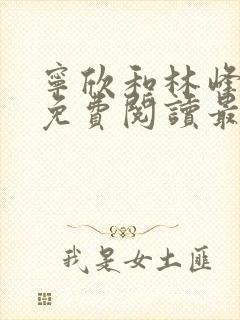 寧欣和林峰
免費閱讀最
我是女土匪